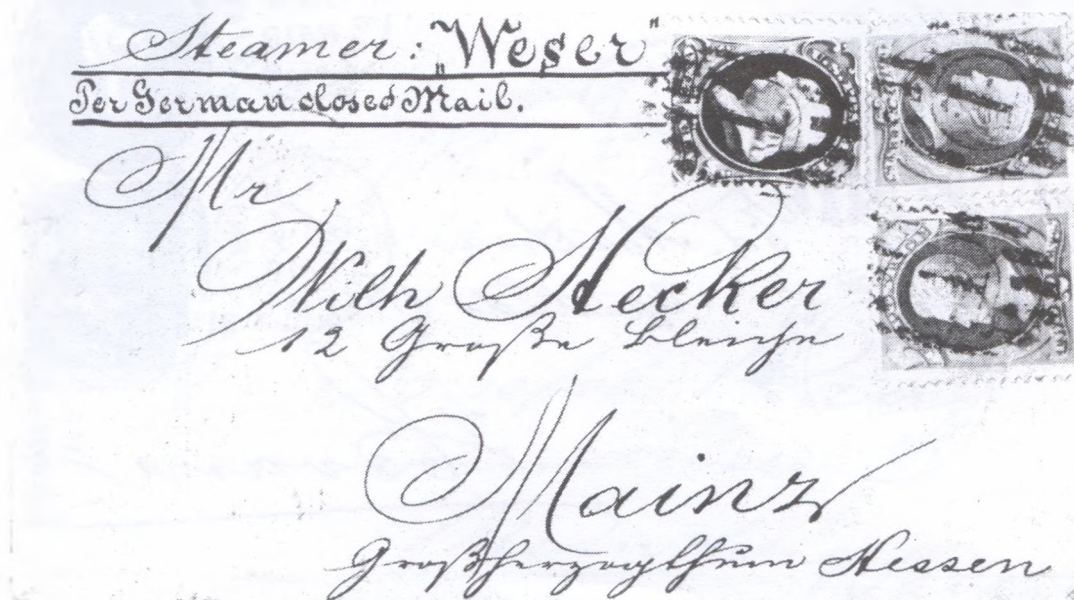 Steamer: „Weser"
Per German closed Mail.
Mr
Wilh Stecker
12 Große Bleiche
Mainz
Großherzogthum Hessen